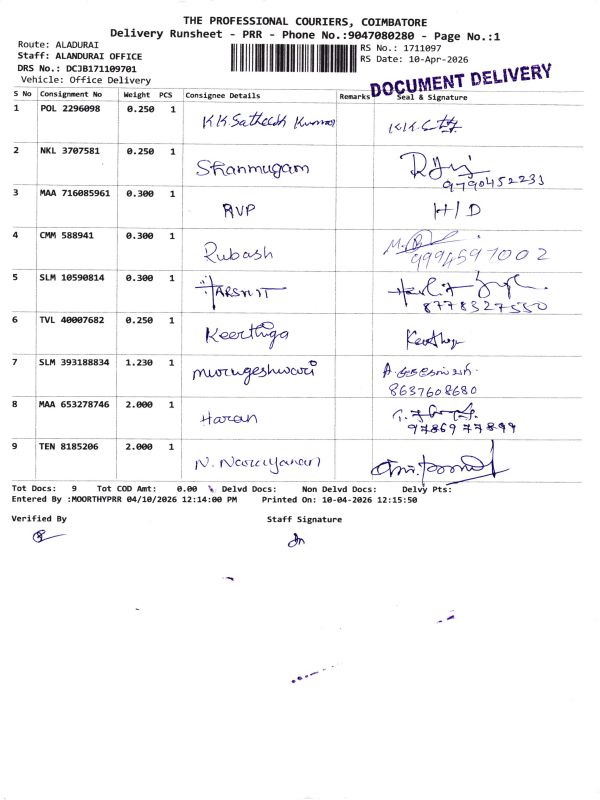 THE PROFESSIONAL COURIERS, COIMBATORE
Delivery Runsheet - PRR - Phone No.:9047080280 - Page No.:1
Route: ALADURAI
Staff: ALANDURAI OFFICE
DRS No.: DCJB171109701
Vehicle: Office Delivery
RS No.: 1711097
RS Date: 10-Apr-2026
DOCUMENT DELIVERY
S No Consignment No Weight PCS Consignee Details Remarks Seal & Signature
1 POL 2296098 0.250 1 K.K.Satheesh Kumar K.K.
2 NKL 3707581 0.250 1 Shanmugam
9790452231
3 MAA 716085961 0.300 1 RVP H/D
4 CMM 588941 0.300 1 Rubash M.
9994597002
5 SLM 10590814 0.300 1 HARSHIT
8778327550
6 TVL 40007682 0.250 1 Keerthiga
7 SLM 393188834 1.230 1 murugeshwari
8637608680
8 MAA 653278746 2.000 1 Haran
9786977899
9 TEN 8185206 2.000 1 N. Narayanan
Tot Docs: 9 Tot COD Amt: 0.00 Delvd Docs: Non Delvd Docs: Delvy Pts:
Entered By :MOORTHYPRR 04/10/2026 12:14:00 PM Printed On: 10-04-2026 12:15:50
Verified By Staff Signature